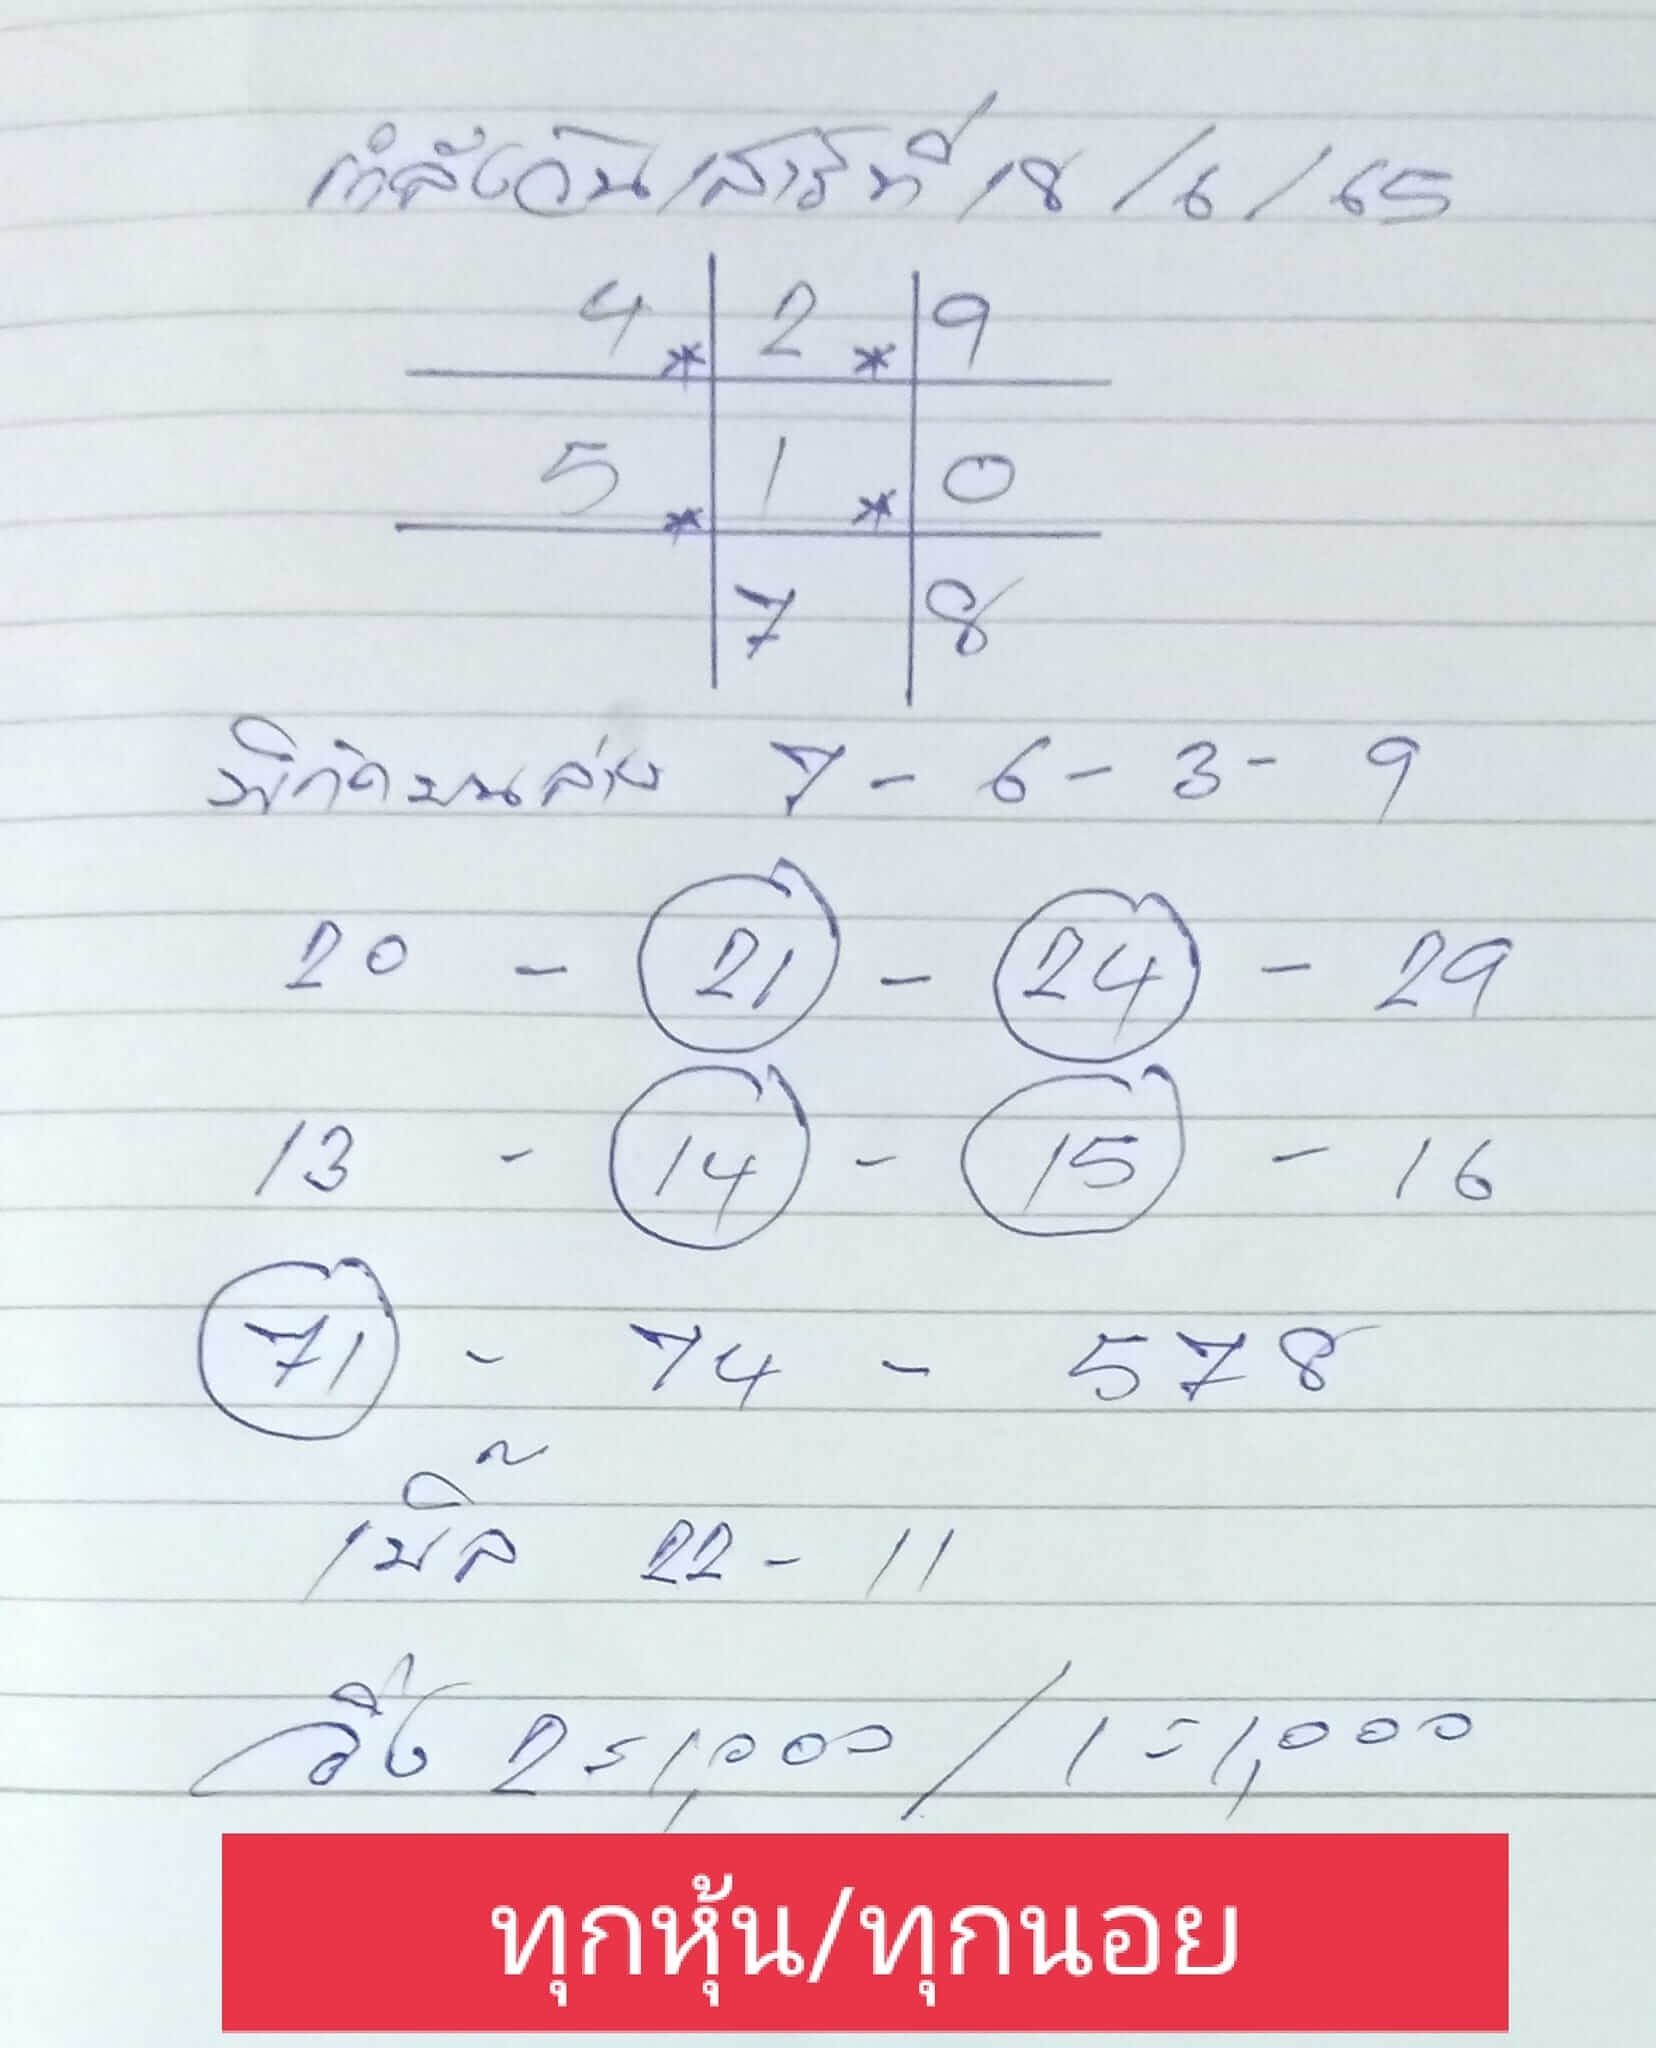 กำลังวันเสาร์ที่ 18/6/65
4 * 2 * 9
5 * 1 * 0
7 8
พิกัดบนล่าง 7 - 6 - 3 - 9
20 - 21 - 24 - 29
13 - 14 - 15 - 16
71 - 74 - 578
เบิ้ล 22 - 11
วิ่ง 2=1,000 / 1=1,000
ทุกหุ้น/ทุกนอย